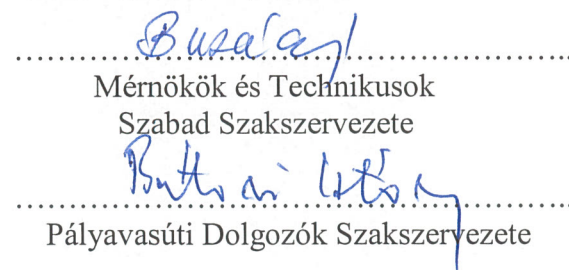 .......................................................
Mérnökök és Technikusok
Szabad Szakszervezete
.......................................................
Pályavasúti Dolgozók Szakszervezete